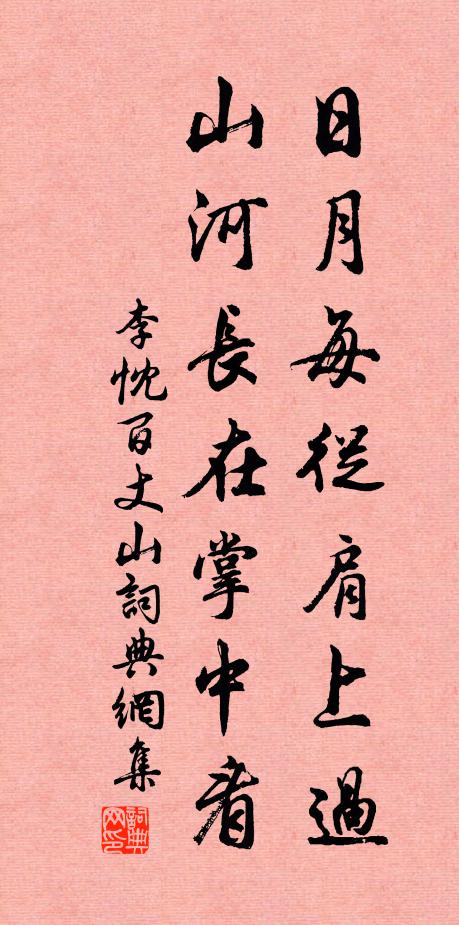 日月每從肩上過
山河長在掌中看
李忱百丈山詞典網集
詞典網印